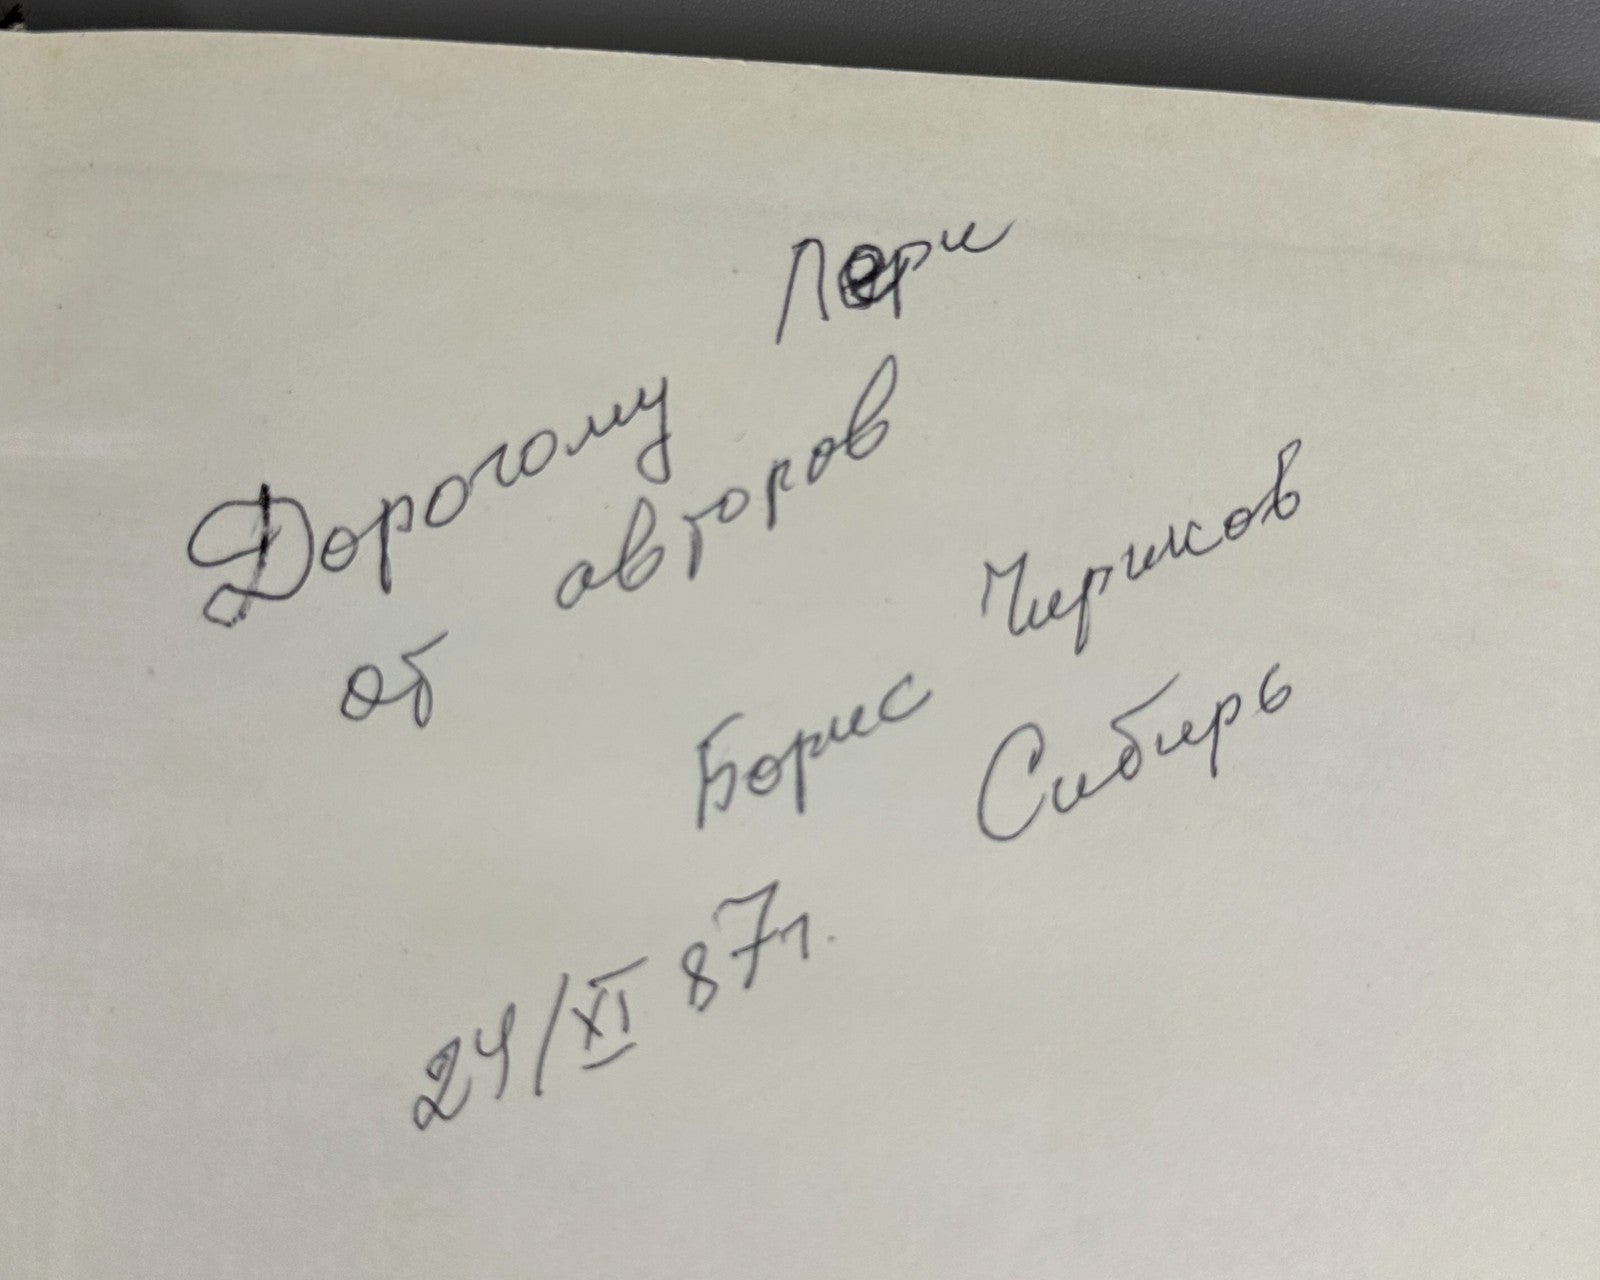 Дорогому Лери
от авторов
Борис Чириков
Сибирь
24/XI 87г.